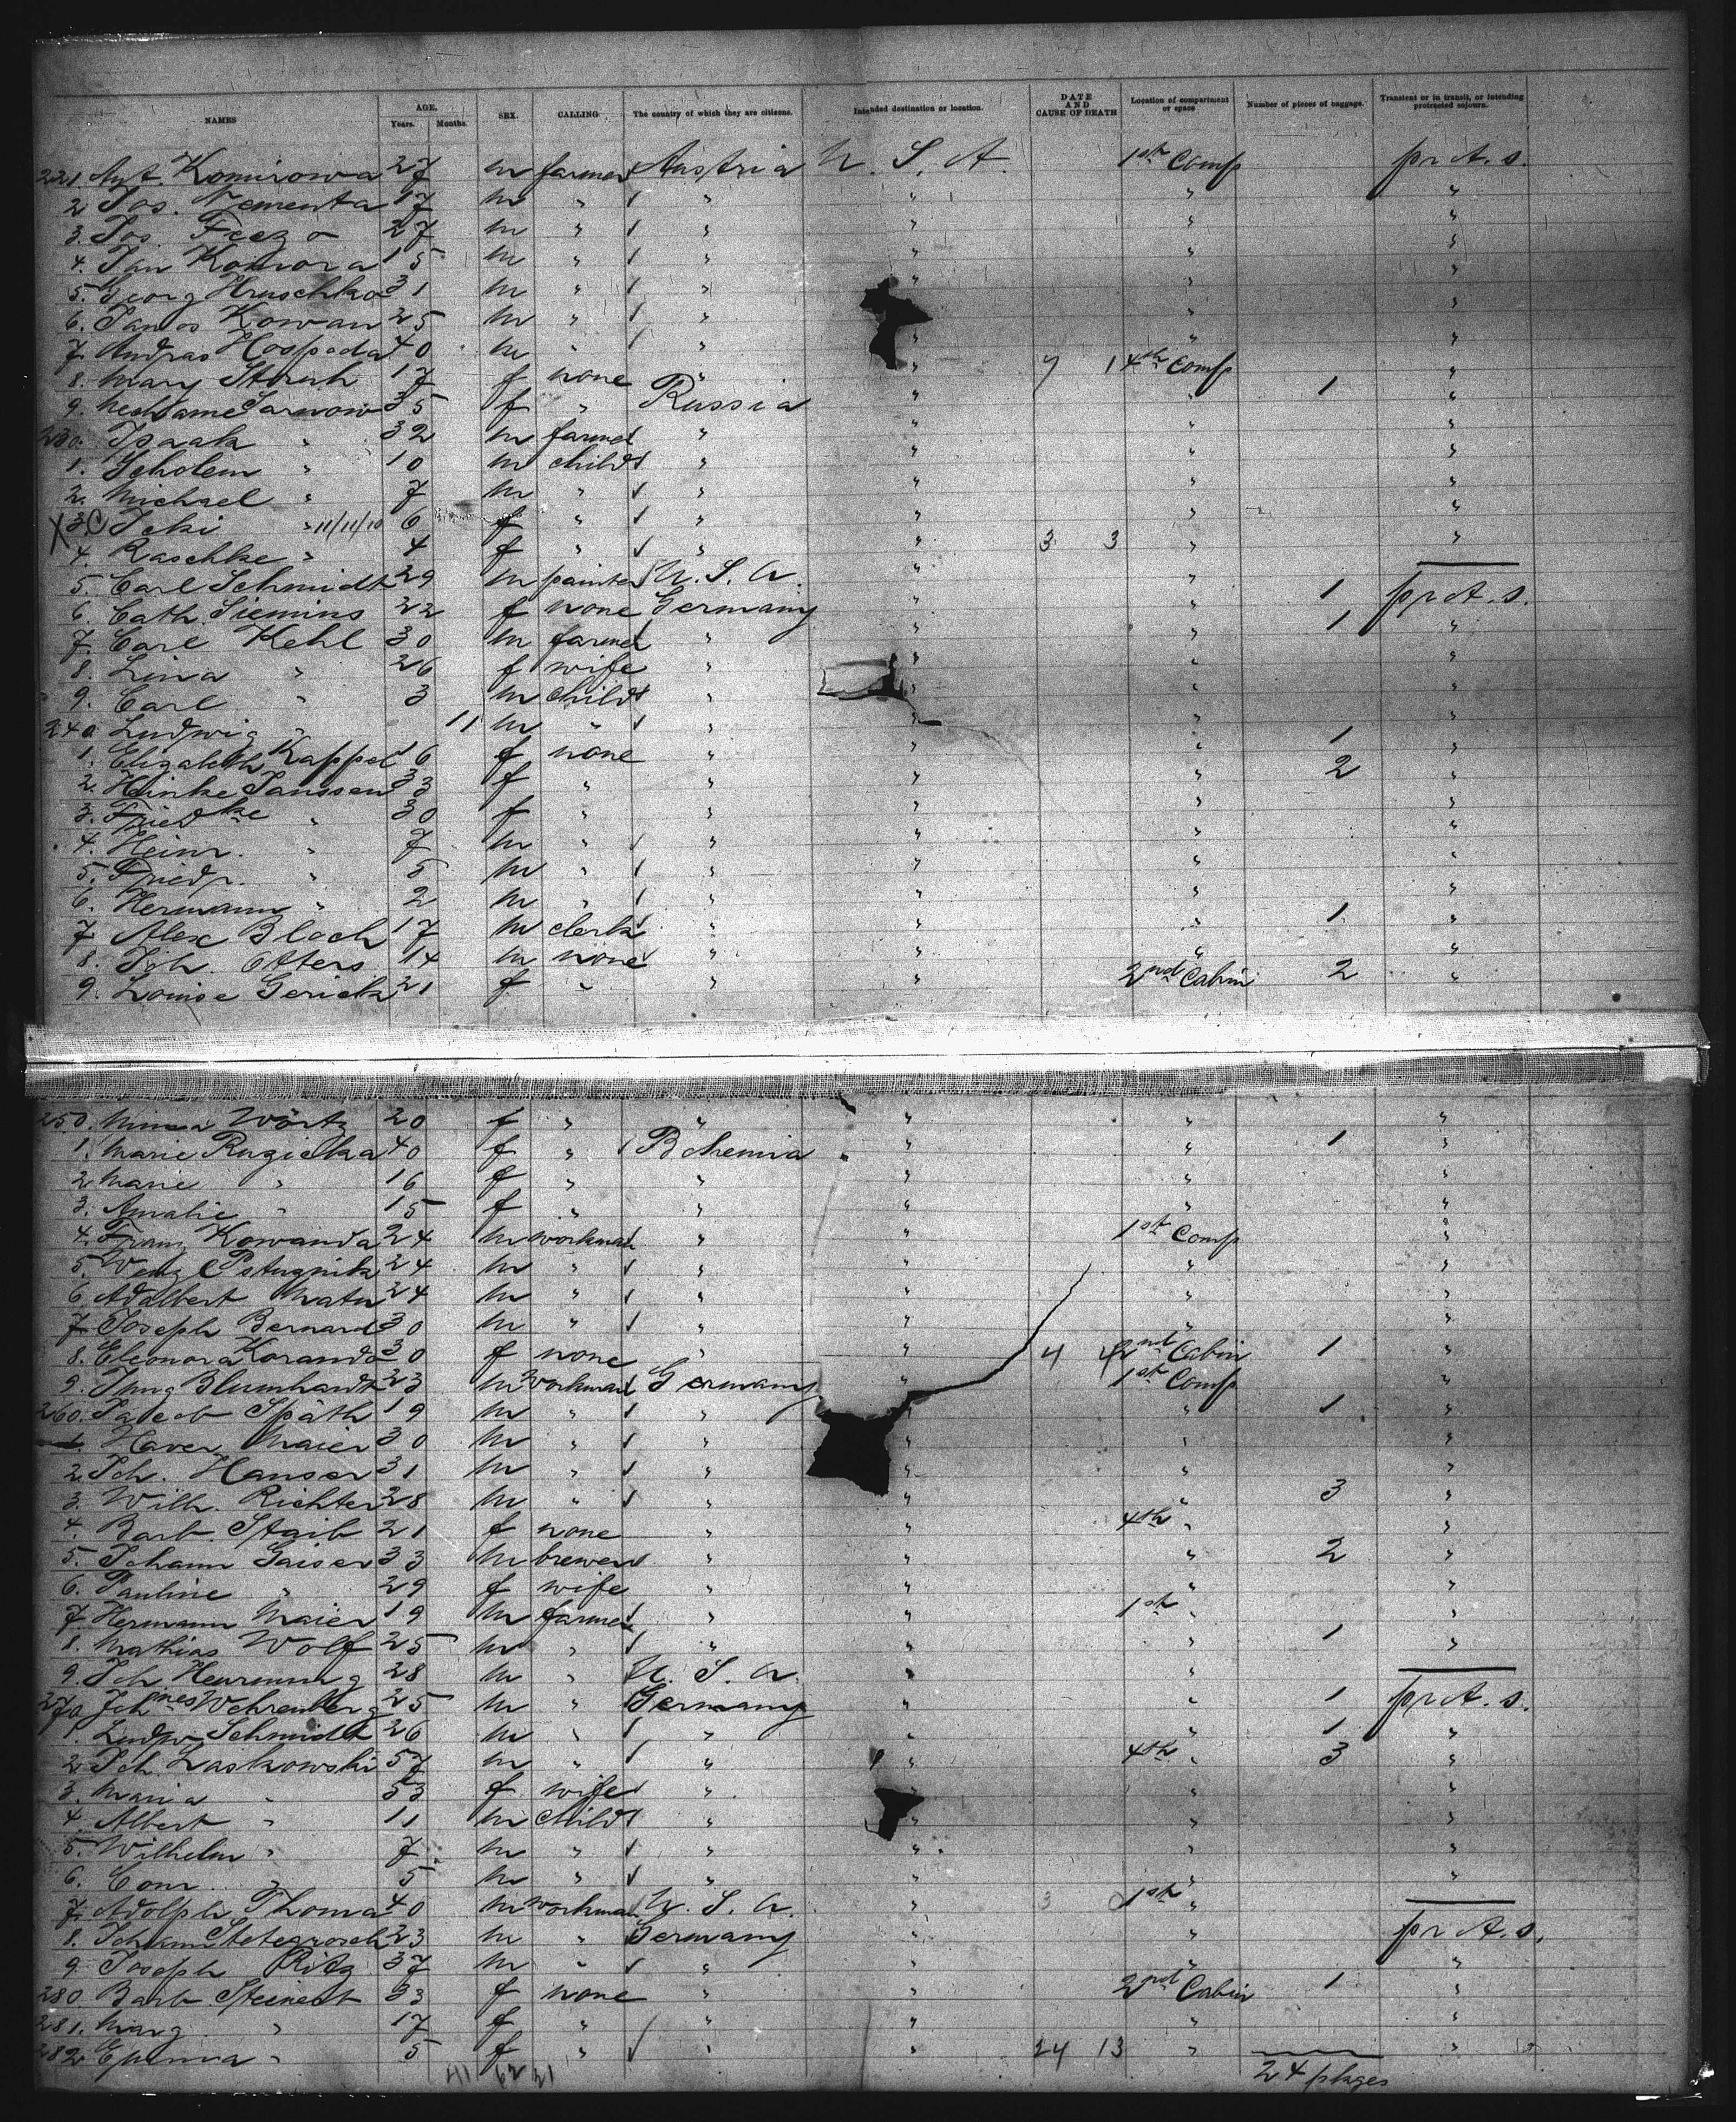 NAMES AGE, Years. Months. SEX. CALLING The country of which they are citizens. Intended destination or location. DATE AND CAUSE OF DEATH Location of compartment or space Number of pieces of baggage. Transient or in transit, or intending protracted sojourn.
221. Ant. Komirowa 27 m farmer Austria U. S. A. 1st Comp pr A. s.
2 Jos. Nementa 17 m " " " " "
3. Jos. Feczo 27 m " " " " "
4. Jan Komora 15 m " " " " "
5. Georg Hruschka 31 m " " " " "
6. Janos Kowan 25 m " " " " "
7. Andras Hospoda 40 m " " " " "
8. Mary Struh 17 f none " " 7 1 4th Comp "
9. Nechame Sarnow 35 f " Russia " " 1 "
230. Isaak " 32 m farmer " " " "
1. Scholem " 10 m child " " " "
2. Michael " 7 m " " " " "
X 3. C Icki " 11/11/10 6 f " " " " "
4. Raschke " 4 f " " " 3 3 " "
5. Carl Schmidt 29 m painter U. S. A. " "
6. Cath. Siemins 22 f none Germany " " 1 pr A. s.
7. Carl Kehl 30 m farmer " " " 1 "
8. Lina " 26 f wife " " " "
9. Carl " 3 m child " " " "
240 Ludwig " 11 m " " " " "
1. Elizabeth Kappel 16 f none " " " 1 "
2. Hinke Janssen 33 f " " " " 2 "
3. Friedke " 30 f " " " " "
4. Heinr. " 7 m " " " " "
5. Friedr. " 5 m " " " " "
6. Hermann " 2 m " " " " "
7 Alex Bloch 17 m clerk " " " 1 "
8. Joh. Otters 14 m none " " " "
9. Louise Gerick 21 f " " " 2nd Cabin 2 "
250. Minna Wörtz 20 f " " " " "
1. Marie Ruzicka 40 f " Bohemia " " 1 "
2 Marie " 16 f " " " " "
3. Amalie " 15 f " " " " "
4. Franz Kowanda 24 m workman " " 1st Comp "
5. Wenz Pstuznik 24 m " " " " "
6 Adalbert Matu 24 m " " " " "
7 Joseph Bernard 30 m " " " " "
8. Eleonora Koranda 30 f none " " 4 4 2nd Cabin 1 "
9. Blumhardt 23 m workman Germany " 1st Comp "
260. Jacob Späth 19 m " " " " 1 "
1. Xaver Maier 30 m " " " " "
2. Joh. Hauser 31 m " " " " "
3. Wilh. Richter 28 m " " " " 3 "
4. Barb Staib 21 f none " " 4th " "
5. Johann Gaiser 33 m brewer " " " 2 "
6. Pauline " 29 f wife " " " "
7 Hermann Maier 19 m farmer " " 1st " "
8. Mathias Wolf 25 m " " " " 1 "
9. Joh Heurung 28 m " U. S. A. " "
270 Johnnes Wehrenberg 25 m " Germany " " 1 pr A. s.
1. Ludw Schmidt 26 m " " " " 1 "
2 Joh Laskowski 57 m " " " 4th " 3 "
3. Maria " 53 f wife " " " "
4. Albert " 11 m child " " " "
5. Wilhelm " 7 m " " " " "
6. Conr. " 5 m " " " " "
7. Adolph Thoma 40 m workman U. S. A. " 3 0 1st "
8. Johann Stetegrosch 23 m " Germany " " pr A. s.
9 Joseph Ritz 37 m " " " " "
280 Barb Steinert 33 f none " " 2nd Cabin 1 "
281. Marg. " 17 f " " " " "
282 " 5 f " " " 24 13 " "
24 pkges